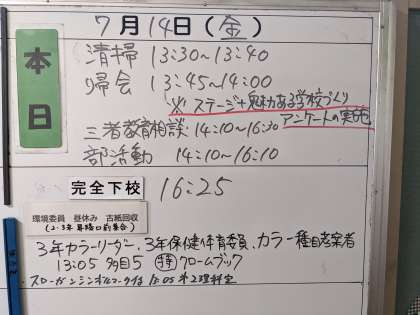 7月14日(金)
本日
清掃 13:30~13:40
帰会 13:45~14:00
※ステージ+魅力ある学校づくり
アンケートの実施
三者教育相談 14:10~16:30
部活動 14:10~16:10
完全下校 16:25
環境委員 昼休み 古紙回収
(2・3年昇降口前集合)
3年カラーリーダー、3年保健体育委員、カラー種目考案者
13:05 多目5 ㊕クロームブック
スローガン 13:05 第2理科室